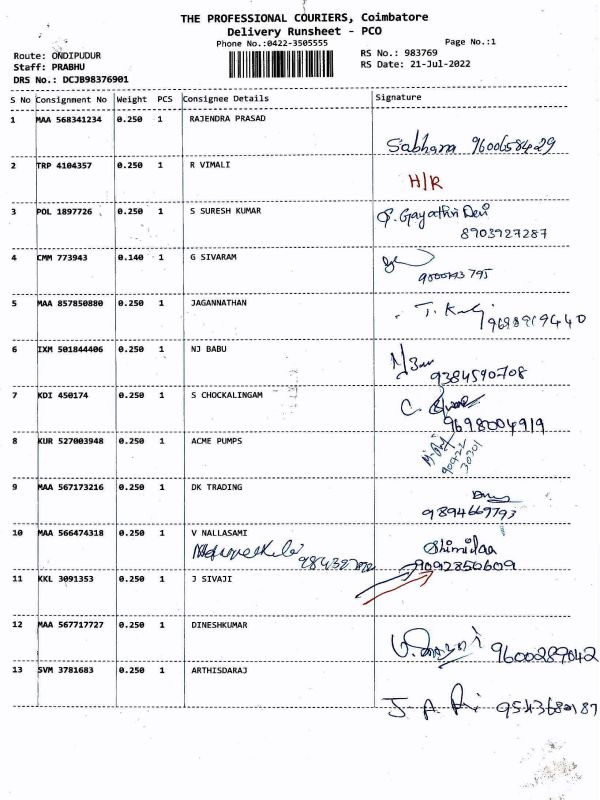 THE PROFESSIONAL COURIERS, Coimbatore
Delivery Runsheet - PCO
Phone No.:0422-3505555
Page No.:1
Route: ONDIPUDUR
Staff: PRABHU
DRS No.: DCJB98376901
RS No.: 983769
RS Date: 21-Jul-2022
S No Consignment No Weight PCS Consignee Details Signature
1 MAA 568341234 0.250 1 RAJENDRA PRASAD
Sabhana 9600658429
2 TRP 4104357 0.250 1 R VIMALI
H/R
3 POL 1897726 0.250 1 S SURESH KUMAR
P. Gayathri Devi
8903927287
4 CMM 773943 0.140 1 G SIVARAM
5 MAA 857850880 0.250 1 JAGANNATHAN
9698919440
6 IXM 501844406 0.250 1 NJ BABU
9384590708
7 KDI 450174 0.250 1 S CHOCKALINGAM
C.
9698004919
8 KUR 527003948 0.250 1 ACME PUMPS
90422
30301
9 MAA 567173216 0.250 1 DK TRADING
9894669793
10 MAA 566474318 0.250 1 V NALLASAMI
9092850609
11 KKL 3091353 0.250 1 J SIVAJI
12 MAA 567717727 0.250 1 DINESHKUMAR
9600289042
13 SVM 3781683 0.250 1 ARTHISDARAJ
J. A.